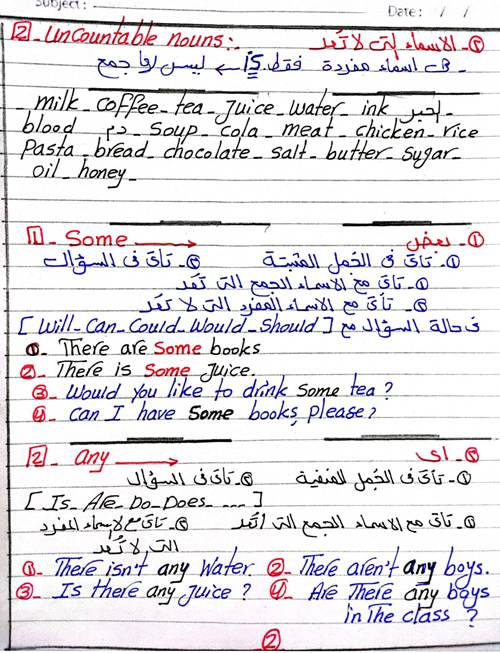 Subject: Date: / /
[2]- uncountable nouns:. ②- الاسماء التى لا تُعد
- هى اسماء مفردة فقط. is ← ليس لها جمع
milk - coffee - tea - Juice - Water - ink حبر -
blood دم - Soup - cola - meat - chicken - rice
Pasta - bread - chocolate - salt - butter - Sugar -
oil - honey -
[1]- Some → ①- بعض
①- تأتى فى الجُمل المثبتة ②- تأتى فى السؤال
①- تأتى مع الاسماء الجمع التى تُعد
②- تأتى مع الاسماء المفرد التى لا تُعد
فى حالة السؤال مع [ Will - Can - Could - Would - Should ]
①- There are Some books
②- There is Some Juice.
③- Would you like to drink Some tea ?
④- Can I have Some books, please ?
[2]- any → ②- اى
①- تأتى فى الجُمل المنفية ②- تأتى فى السؤال
[ Is - Are - Do - Does - ... ]
①- تأتى مع الاسماء الجمع التى تُعد ②- تأتى مع الاسماء المفرد
التى لا تُعد
①- There isn't any Water. ②- There aren't any boys.
③- Is there any Juice ? ④- Are There any boys
in The class ?
②